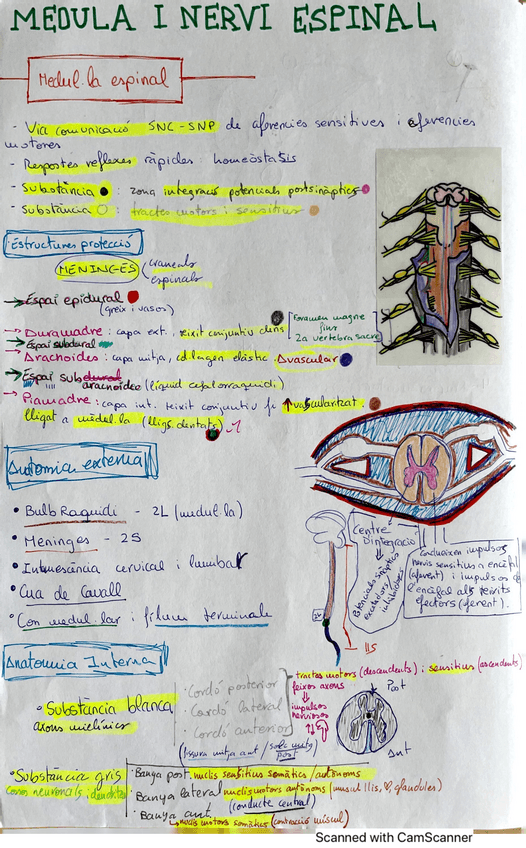 MEDUL·LA I NERVI ESPINAL
Medul·la espinal
- Via comunicació SNC-SNP de aferències sensitives i eferències
motores
- Respostes reflexes ràpides: homeòstasis
- Substància : zona integració potencials postsinàptics
- Substància : tractes motors i sensitius
Estructures protecció
MENINGES
craneals
espinals
→ Espai epidural
(greix i vasos)
→ Duramadre: capa ext. teixit conjuntiu dens
Foramen magne
fins
2a vertebra sacre
→ Espai subdural
→ Aracnoides: capa mitja, col·lagen elàstic. Avascular
→ Espai subdural
aracnoidea (líquid cefalorraquidi)
→ Piamadre: capa int. teixit conjuntiu fi ↑vascularitzat
lligat a medul·la (lligs. dentats)
Anatomia externa
• Bulb Raquidi - 2L (medul·la)
• Meninges - 2S
• Intumescència cervical i lumbar
• Cua de Cavall
• Con medul·lar i filum terminale
Centre
D'integració
Potencials sinàptics
excitadors/
inhibidors
Condueixen impulsos
nervis sensitius a encèfal
(aferent) i impulsos de
l'encèfal als teixits
efectors (eferent).
Anatomia Interna
• Substància blanca
axons mielínics
· Cordó posterior
· Cordó lateral
· Cordó anterior
(fisura mitja ant / solc mitg
post
tractes motors (descendents) i sensitius (ascendents)
feixos axons
↓
impulsos
nerviosos
Post
Ant
• Substància gris
Cossos neuronals i dendrites
· Banya post. nuclis sensitius somàtics / autònoms
· Banya lateral nuclis motors autònoms (muscul llis, ♡, glandules)
(conducte central)
· Banya ant.
nuclis motors somàtics (contracció múscul)
Scanned with CamScanner